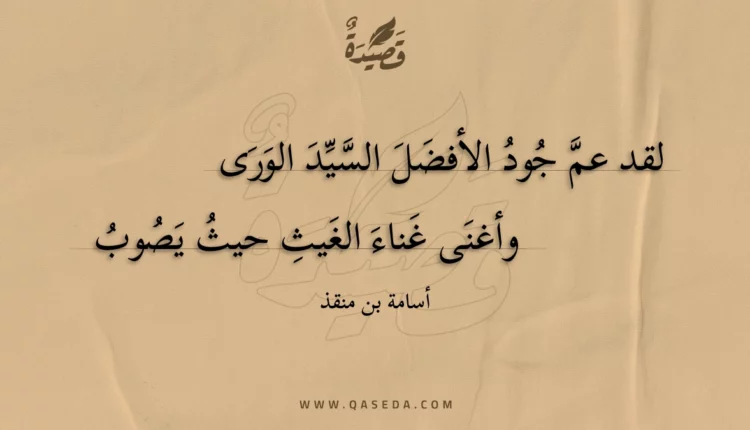 قَصِيْدَةٌ
لقد عمَّ جُودُ الأفضَلَ السَّيِّدَ الوَرَى
وأغنَى غَناءَ الغَيثِ حيثُ يَصُوبُ
أسامة بن منقذ
WWW.QASEDA.COM